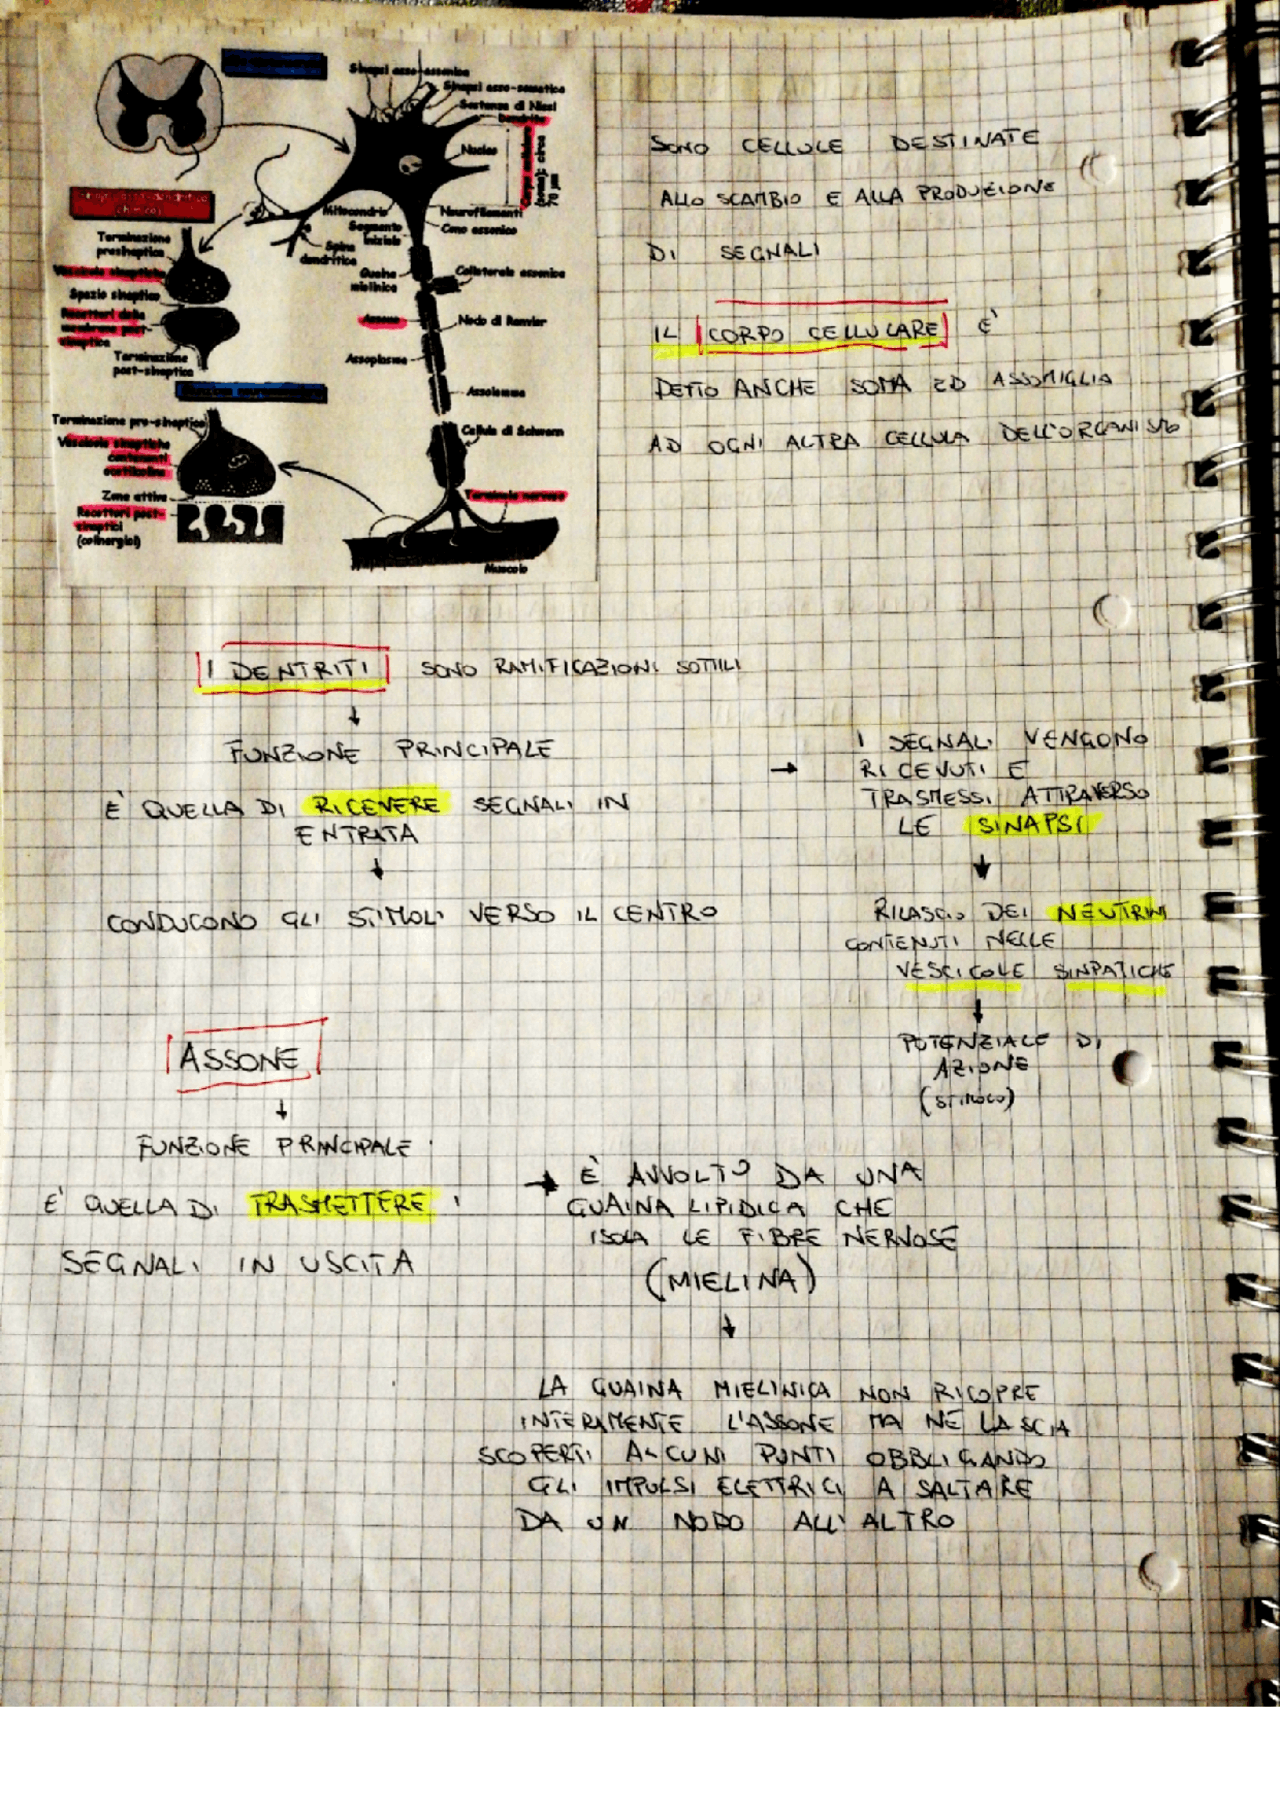 Sinapsi asso-assonica
Sinapsi asso-somatica
Sostanza di Nissl
Dendrite
Nucleo
Corpo cellulare
(soma); circa
70 μm
Mitocondrio
Segmento
iniziale
Neurofilamenti
Cono assonico
Spina
dendritica
Guaina
mielinica
Collaterale assonica
Assone
Nodo di Ranvier
Assoplasma
Assolemma
Cellula di Schwann
Terminale nervoso
Muscolo
Terminazione
presinaptica
Vescicole sinaptiche
Spazio sinaptico
Recettori della
membrana post-
sinaptica
Terminazione
post-sinaptica
Terminazione pre-sinaptica
Vescicole sinaptiche
contenenti
acetilcolina
Zone attive
Recettori post-
sinaptici
(colinergici)
SONO CELLULE DESTINATE
ALLO SCAMBIO E ALLA PRODUZIONE
DI SEGNALI
IL CORPO CELLULARE E'
DETTO ANCHE SOMA ED ASSOMIGLIA
AD OGNI ALTRA CELLULA DELL'ORGANISMO
I DENTRITI SONO RAMIFICAZIONI SOTTILI
↓
FUNZIONE PRINCIPALE
È QUELLA DI RICEVERE SEGNALI IN
ENTRATA
↓
CONDUCONO GLI STIMOLI VERSO IL CENTRO
→ I SEGNALI VENGONO
RICEVUTI E
TRASMESSI ATTRAVERSO
LE SINAPSI
↓
RILASCIO DEI NEUTRINI
CONTENUTI NELLE
VESCICOLE SINPATICHE
↓
POTENZIALE DI
AZIONE
(STIMOLO)
ASSONE
↓
FUNZIONE PRINCIPALE
E' QUELLA DI TRASMETTERE
SEGNALI IN USCITA
→ È AVVOLTO DA UNA
GUAINA LIPIDICA CHE
ISOLA LE FIBRE NERVOSE
(MIELINA)
↓
LA GUAINA MIELINICA NON RICOPRE
INTERAMENTE L'ASSONE MA NE LASCIA
SCOPERTI ALCUNI PUNTI OBBLIGANDO
GLI IMPULSI ELETTRICI A SALTARE
DA UN NODO ALL'ALTRO